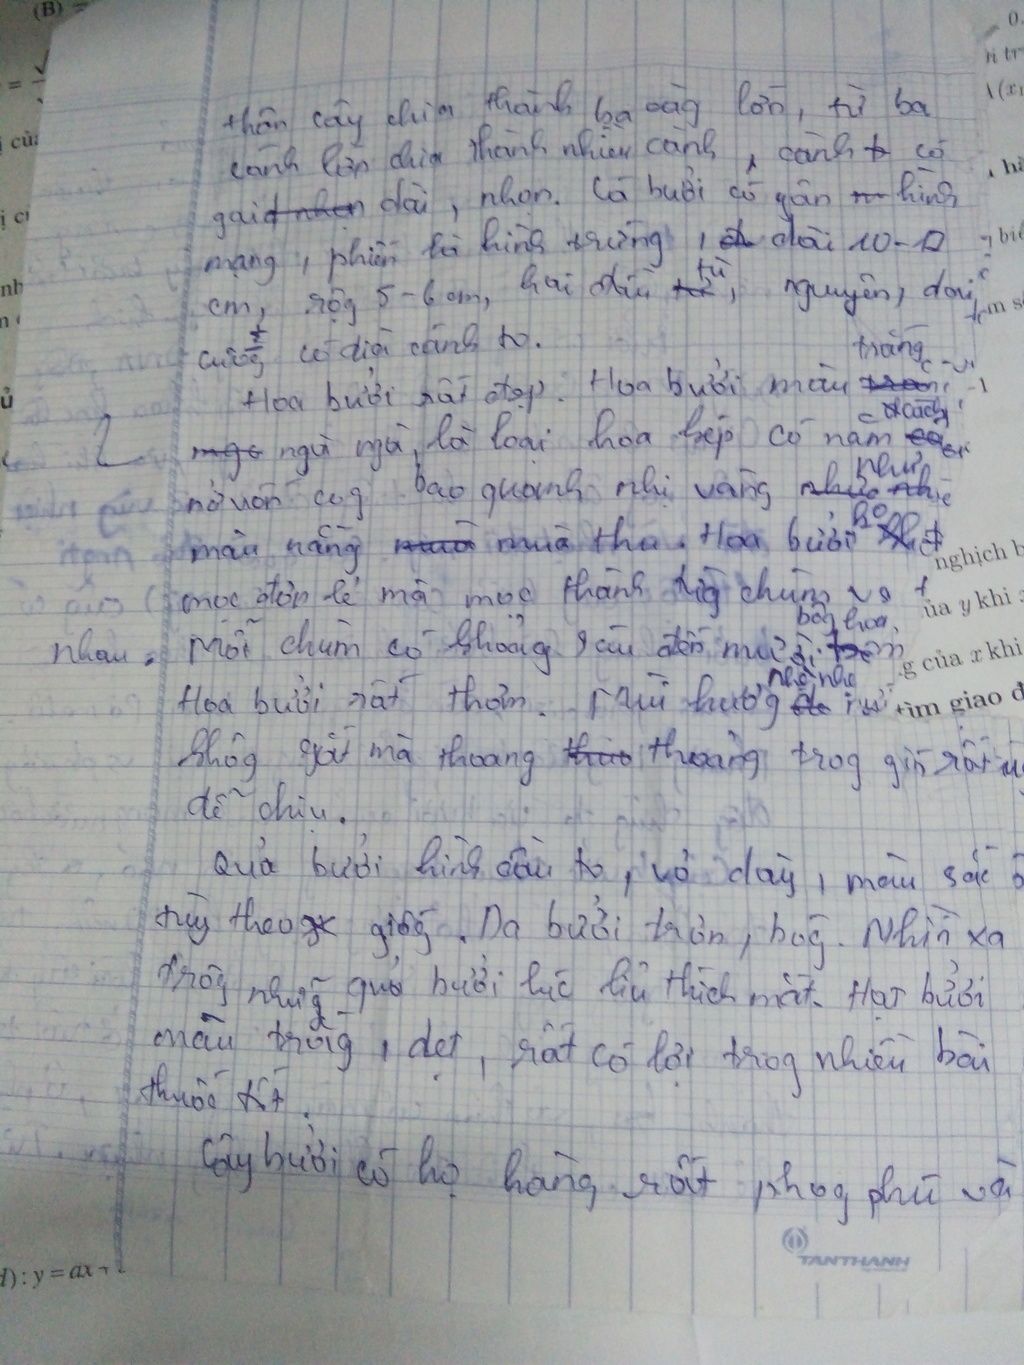 thân cây chia thành ba càg lớn, từ ba
cành lớn chia thành nhiều cành, cành có
gai dài, nhọn. Lá bưởi có gân hình
mạng, phiến lá hình trứng, dài 10-12
cm, rộg 5-6 cm, hai đầu tù, nguyên, dai,
cuốg có dìa cánh to.
Hoa bưởi rất đẹp. Hoa bưởi màu trắng
ngà ngà, là loại hoa kép có năm cách
nở uốn cog bao quanh nhị vàng như
màu nắng mùa thu. Hoa bưởi ko
mọc đơn lẻ mà mọc thành từg chùm vs
nhau. Mỗi chùm có khoảng sáu đến mười bôg hoa.
Hoa bưởi rất thơm. Mùi hươg nhè nhẹ
khôg gắt mà thoang thoảng trog gió rất
dễ chịu.
Quả bưởi hình cầu to, vỏ dày, màu sắc
tùy theo giốg. Da bưởi trơn, bóg. Nhìn xa
trôg nhữg quả bưởi lúc lỉu thích mắt. Hạt bưởi
màu trắg, dẹt, rất có lợi trog nhiều bài
thuốc
Cây bưởi có họ hàng rất phog phú và
TANTHANH
(B)
nghịch b
ủa y khi
g của x khi
tìm giao đ
: y = ax +